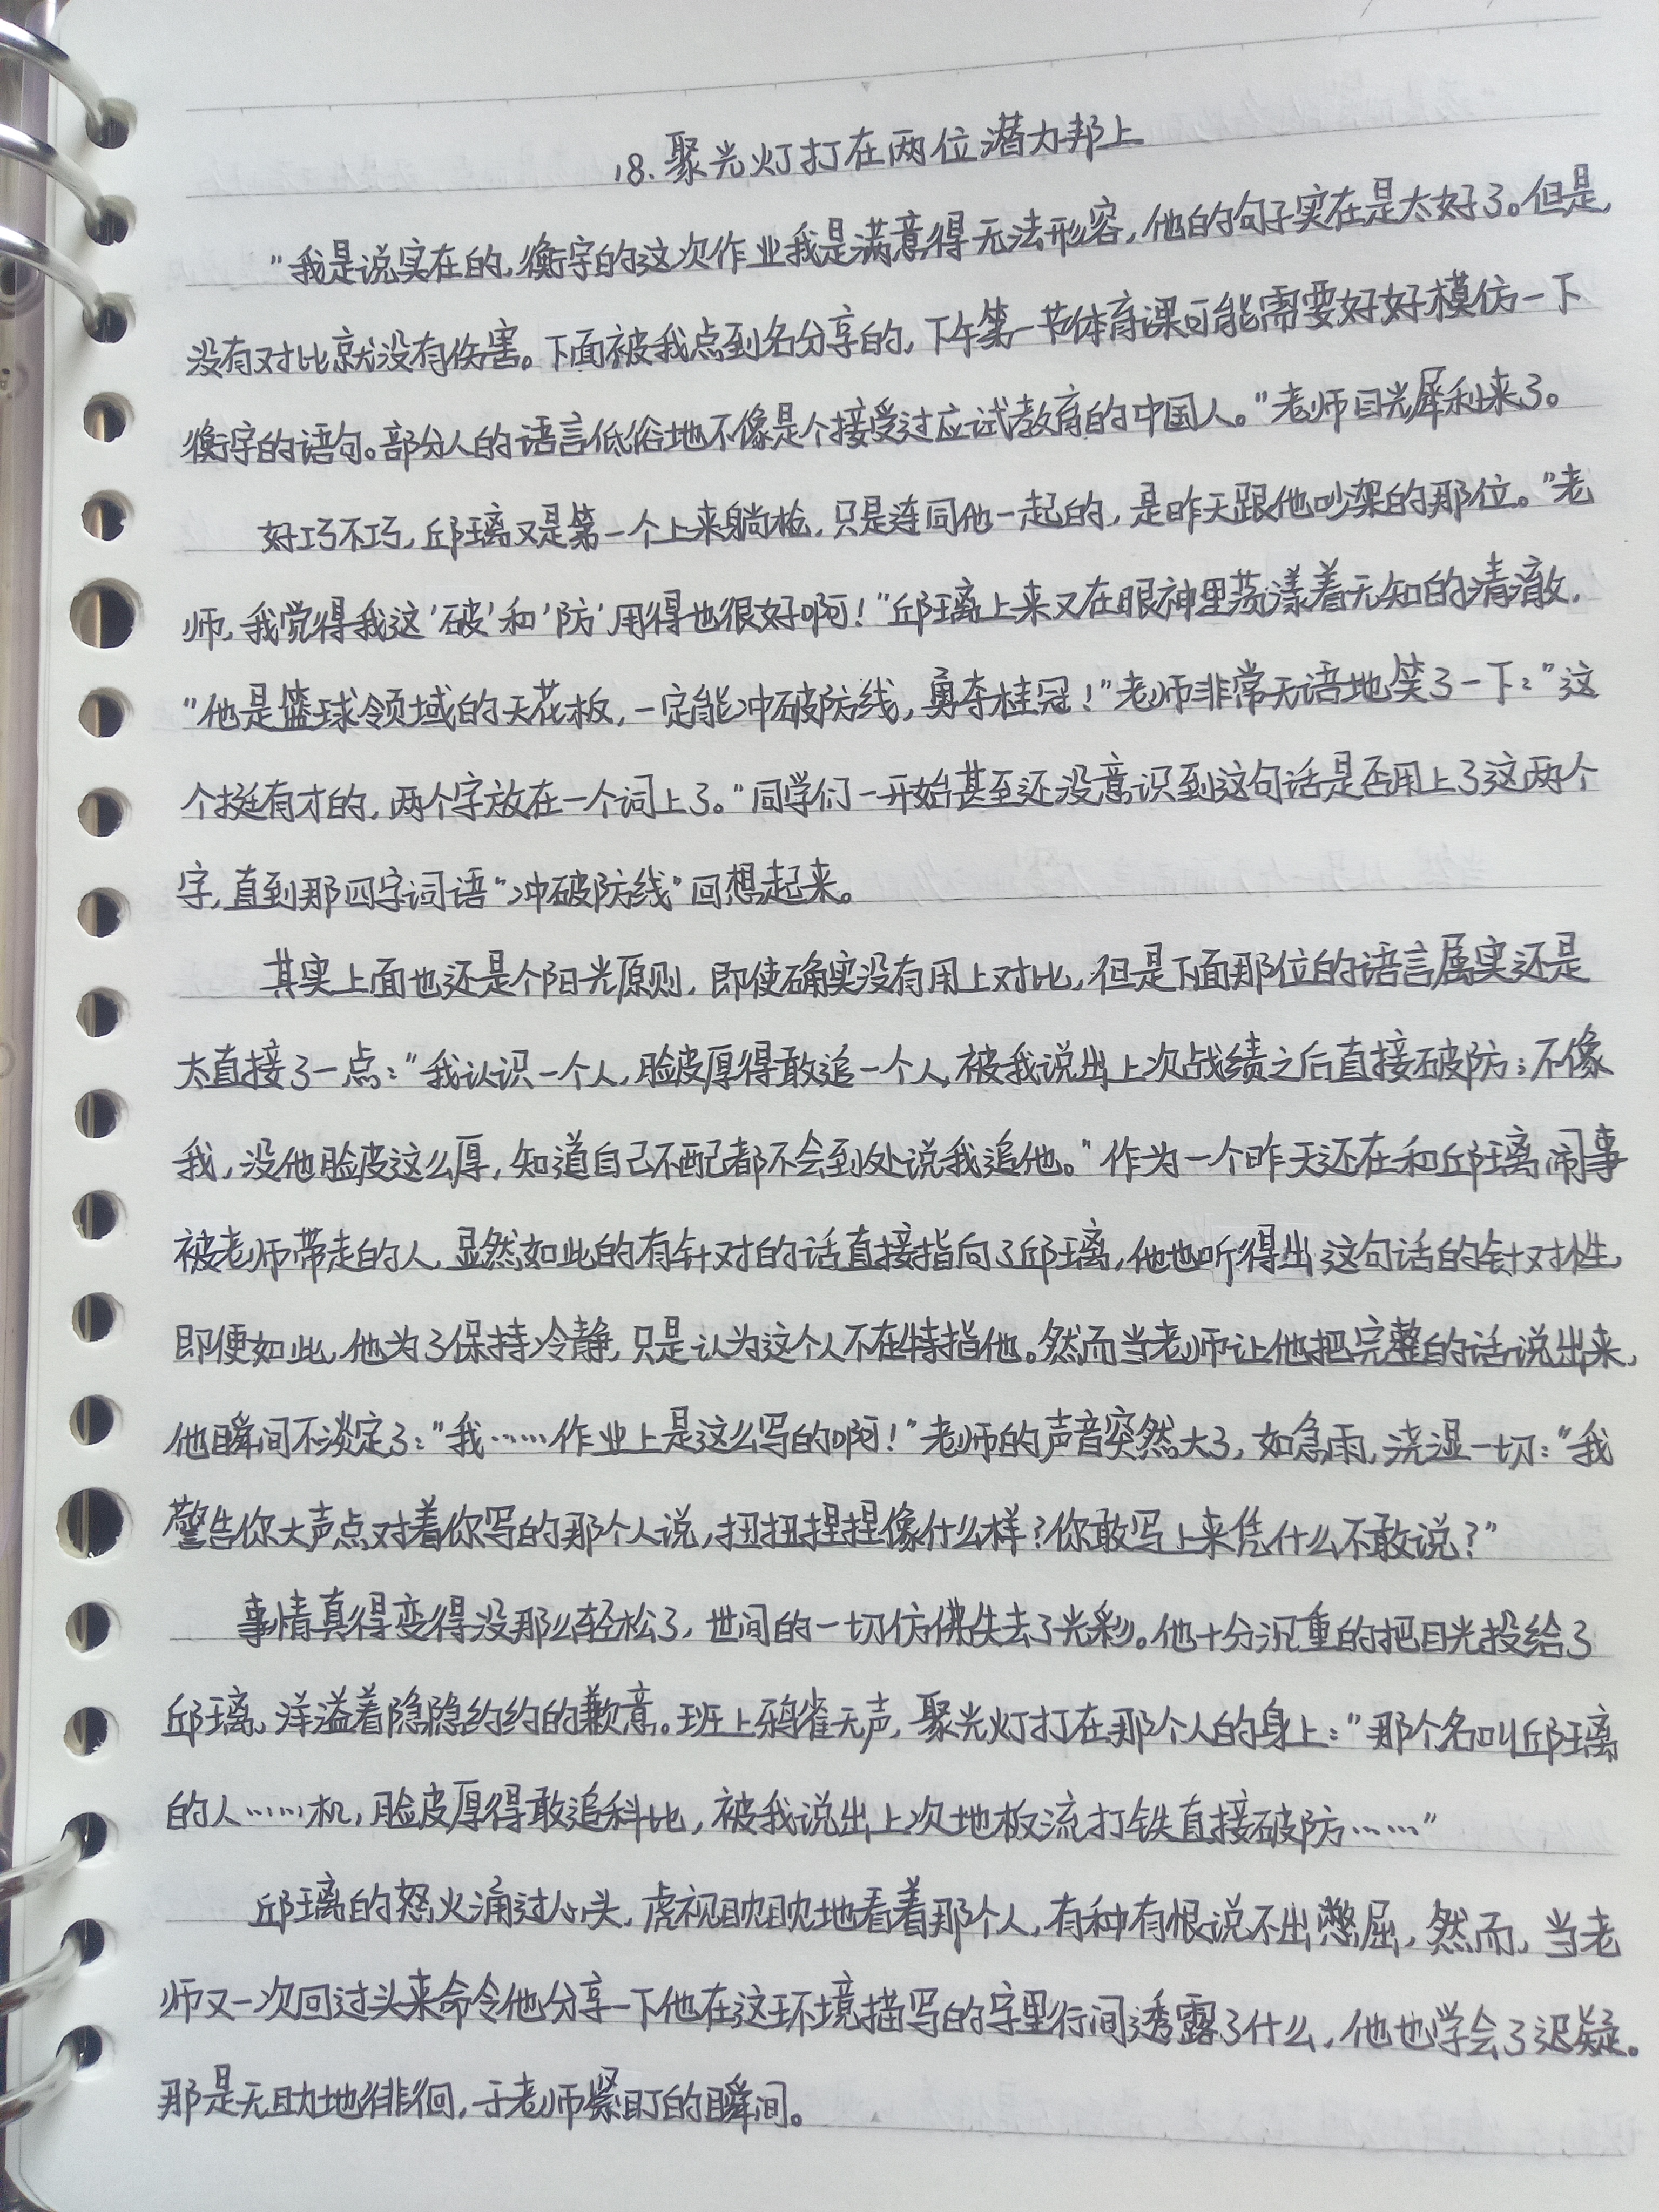 18.聚光灯打在两位潜力邦上
"我是说实在的,衡宇的这次作业我是满意得无法形容,他的句子实在是太好了。但是,
没有对比就没有伤害。下面被我点到名分享的,下午第一节体育课可能需要好好模仿一下
衡宇的语句。部分人的语言低俗地不像是个接受过应试教育的中国人。"老师目光犀利来了。
好巧不巧,邱璃又是第一个上来躺枪,只是连同他一起的,是昨天跟他吵架的那位。"老
师,我觉得我这'破'和'防'用得也很好啊!"邱璃上来又在眼神里荡漾着无知的清澈,
"他是篮球领域的天花板,一定能冲破防线,勇夺桂冠!"老师非常无语地笑了一下:"这
个挺有才的,两个字放在一个词上了。"同学们一开始甚至还没意识到这句话是否用上了这两个
字,直到那四字词语"冲破防线"回想起来。
其实上面也还是个阳光原则,即使确实没有用上对比,但是下面那位的语言属实还是
太直接了一点:"我认识一个人,脸皮厚得敢追一个人,被我说出上次战绩之后直接破防;不像
我,没他脸皮这么厚,知道自己不配都不会到处说我追他。"作为一个昨天还在和邱璃闹事
被老师带走的人,显然如此的有针对的话直接指向了邱璃,他也听得出这句话的针对性,
即便如此,他为了保持冷静,只是认为这个人不在特指他。然而当老师让他把完整的话说出来,
他瞬间不淡定了:"我……作业上是这么写的啊!"老师的声音突然大了,如急雨,浇湿一切:"我
警告你大声点对着你写的那个人说,扭扭捏捏像什么样?你敢写上来凭什么不敢说?"
事情真得变得没那么轻松了,世间的一切仿佛失去了光彩。他十分沉重的把目光投给了
邱璃,洋溢着隐隐约约的歉意。班上鸦雀无声,聚光灯打在那个人的身上:"那个名叫邱璃
的人……机,脸皮厚得敢追科比,被我说出上次地板流打铁直接破防……"
邱璃的怒火涌过心头,虎视眈眈地看着那个人,有种有恨说不出憋屈,然而,当老
师又一次回过头来命令他分享一下他在这环境描写的字里行间透露了什么,他也学会了迟疑。
那是无助地徘徊,于老师紧盯的瞬间。